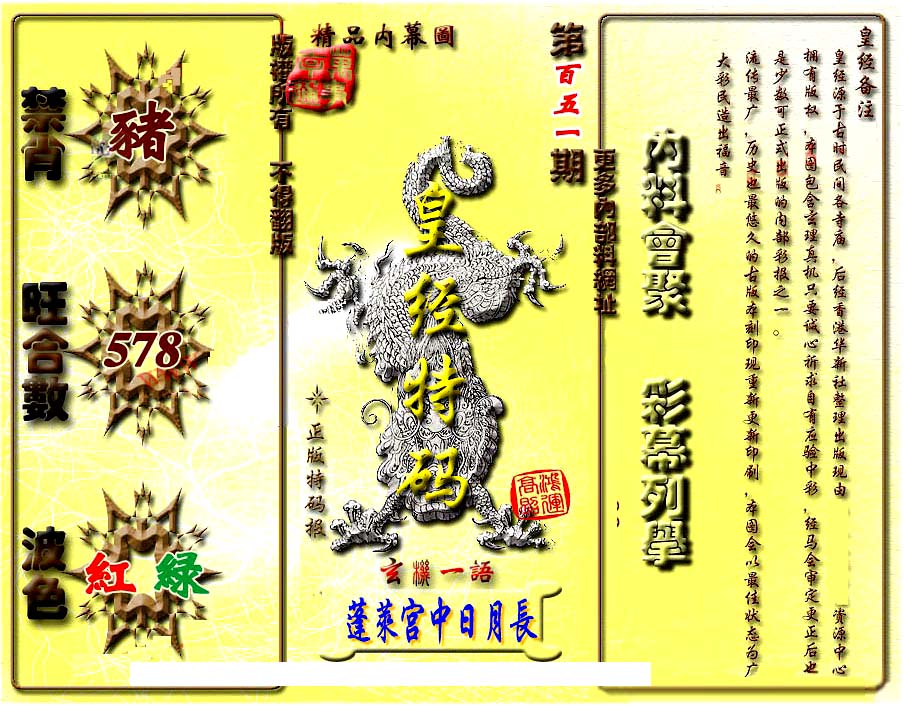 皇经备注
皇经源于古时民间各寺庙，后经香港华新社整理出版现由 资源中心
拥有版权，本图包含玄理真机只要诚心祈求自有应验中彩，经马会审定更正后也
是少数可正式出版的内部彩报之一。
流传最广，历史也最悠久的古版本刻印现重新更新印刷，本图会以最佳状态为广
大彩民造出福音。
内料會聚 彩幕列舉
更多内部料網址
第百五一期
精品内幕圖
版權所有 不得翻版
皇经特码
正版特码报
鴻運高照
玄機一語
蓬萊宫中日月長
禁肖
豬
旺合數
578
波色
紅 緑